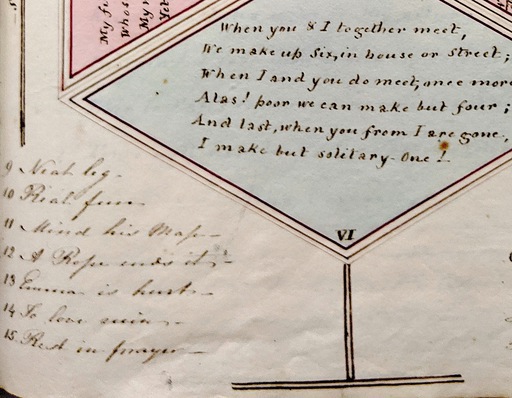 My fi
Whos
My n
Yet
When you & I together meet,
We make up Six, in house or street;
When I and you do meet, once more
Alas! poor we can make but four;
And last, when you from I are gone,
I make but solitary One!
VI
9 Neat leg
10 Real fun
11 Mind his Map
12 A Rope ends it
13 Emma is hurt
14 To love ruin
15 Rest in prayer